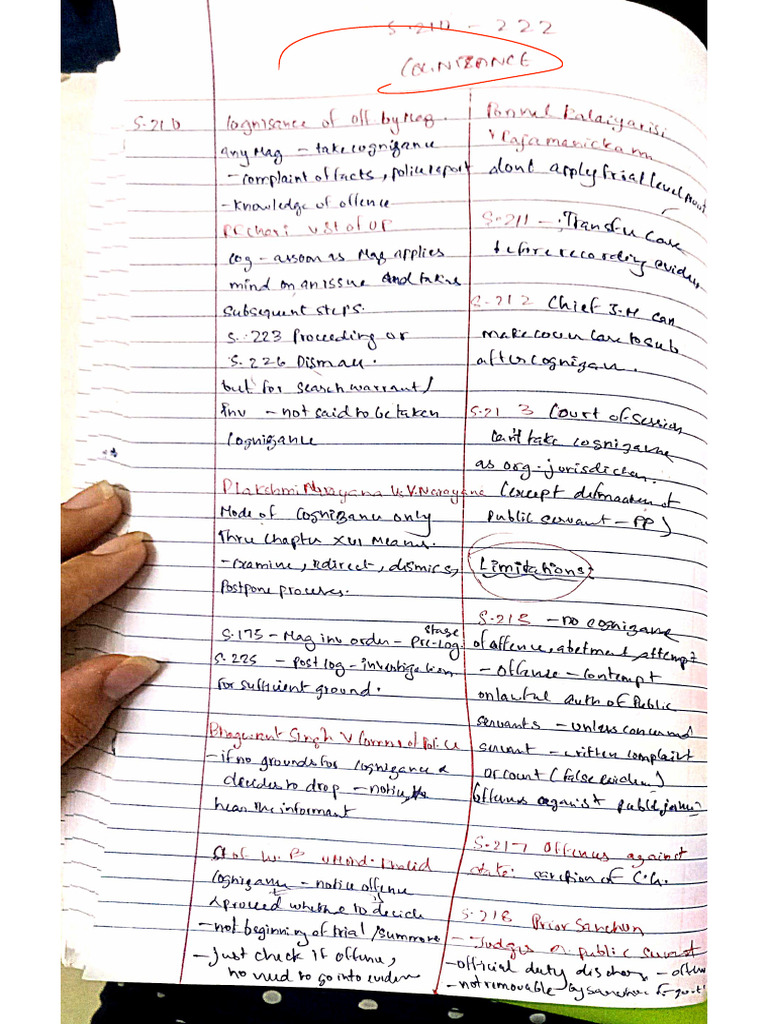 S. 210 - 222
COGNIZANCE
S. 210 Cognisance of off by Mag.
any Mag - take cognizance
- complaint of facts, police report
- Knowledge of offence
R R Chari v St of UP
Cog - as soon as Mag applies
mind on an issue and takes
subsequent steps.
S. 223 Proceeding or
S. 226 Dismiss.
but for search warrant /
Inv - not said to be taken
Cognizance
D Lakshmi Narayana v. V. Narayana
Mode of Cognizance only
thru Chapter XVI means.
- examine, redirect, dismiss,
Postpone process.
S. 175 - Mag inv order - Pre-Cog. stage
S. 225 - post cog - investigation
for sufficient ground.
Bhagwant Singh v Comms of Police
- if no grounds for cognizance &
decides to drop - notice,
hear the informant
St of W. B v Mohd. Khalid
Cognizance - notice offence
& proceed whether to decide
- not beginning of trial / summons
- Just check if offence,
no need to go into eviden
Ponnal Kalaiyarasi
v Rajamanickam
dont apply trial level
S. 211 - Transfer Case
before recording eviden
S. 212 Chief J.M can
make over Case to sub
after cognizan.
S. 213 Court of session
can't take cognizance
as org. jurisdiction.
(except defmaation of
public servant - PP)
Limitations:
S. 215 - no cognizance
of offence, abetment, attempt
- offense - contempt
on lawful auth of Public
servants - unless concerned
servant - written complaint
or court (false eviden)
(offences against public justice)
S. 217 Offences against
state: sanction of C.G.
S. 218 Prior Sanction
- Judges or public servant
- official duty discharg - offen
- not removable by sanction of govt